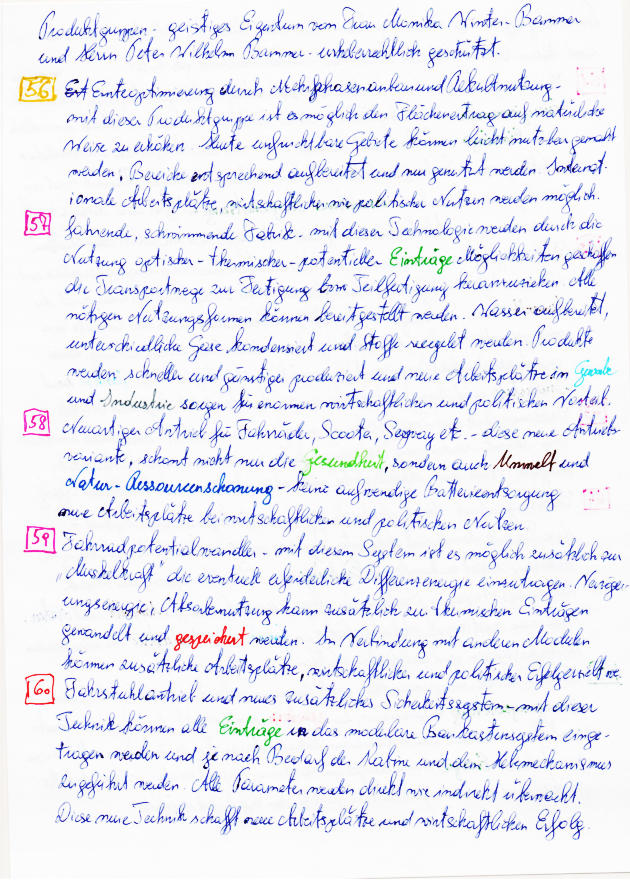 Produktgruppen - geistiges Eigentum von Frau Monika Winter-Bammer
und Herrn Peter Wilhelm Bammer - urheberrechtlich geschützt.
56 Ernteoptimierung durch Mehrphasenanbau und Ackultnutzung -
mit dieser Produktgruppe ist es möglich den Flächenertrag auf natürliche
Weise zu erhöhen. Heute unfruchtbare Gebiete können leicht nutzbar gemacht
werden. Bereiche entsprechend aufbereitet und nun genutzt werden. Internat-
ionale Arbeitsplätze, wirtschaftlicher wie politischer Nutzen werden möglich.
57 fahrende, schwimmende Fabrik - mit dieser Technologie werden durch die
Nutzung optischer - thermischer - potentieller Einträge Möglichkeiten geschaffen
die Transportwege zur Fertigung bzw Teilfertigung heranzuziehen. Alle
nötigen Nutzungsformen können bereitgestellt werden. Wasser aufbereitet,
unterschiedliche Gase, kondensiert und Stoffe recycelt werden. Produkte
werden schneller und günstiger produziert und neue Arbeitsplätze im Gewerbe
und Industrie sorgen für enormen wirtschaftlichen und politischen Vorteil.
58 Neuartiger Antrieb für Fahrräder, Scooter, Segway etc. - diese neue Antriebs-
variante, schont nicht nur die Gesundheit, sondern auch Umwelt und
Natur - Ressourcenschonung - keine aufwendige Batterieentsorgung
neue Arbeitsplätze bei wirtschaftlichen und politischen Nutzen.
59 Fahrradpotentialwandler - mit diesem System ist es möglich zusätzlich zur
"Muskelkraft" die eventuell erforderliche Differenzenergie einzutragen. Verzöger-
ungsenergie; Absorbernutzung kann zusätzlich zu thermischen Einträgen
gewandelt und gespeichert werden. In Verbindung mit anderen Modulen
können zusätzliche Arbeitsplätze, wirtschaftlicher und politischer Erfolg
60 Fahrstuhlantrieb und neues zusätzliches Sicherheitssystem - mit dieser
Technik können alle Einträge in das modulare Baukastensystem einge-
tragen werden und je nach Bedarf der Kabine und dem Hebemechanismus
zugeführt werden. Alle Parameter werden direkt wie indirekt überwacht.
Diese neue Technik schafft neue Arbeitsplätze und wirtschaftlichen Erfolg.